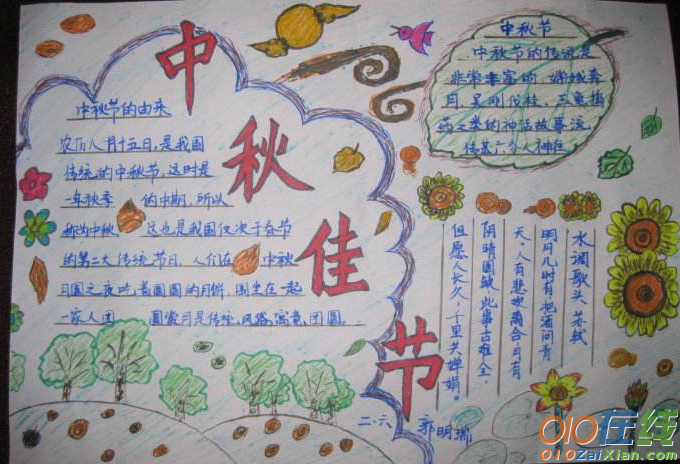 中秋佳节
中秋节的由来
农历八月十五日,是我国
传统的中秋节,这时是
一年秋季 的中期,所以
称为中秋 这也是我国仅次于春节
的第二大传统节日,人们在 中秋
月圆之夜吃着圆圆的月饼,围坐在一起
一家人团 圆赏月是传统风俗,寓意团圆。
中秋节
中秋节的传说是
非常丰富的,嫦娥奔
月,吴刚伐桂,玉兔捣
药之类的神话故事流
传甚广
水调歌头 苏轼
明月几时有,把酒问青
天。人有悲欢离合,月有
阴晴圆缺,此事古难全。
但愿人长久,千里共婵娟。
二·六 郭明瑞
010在线
010ZaiXian.com